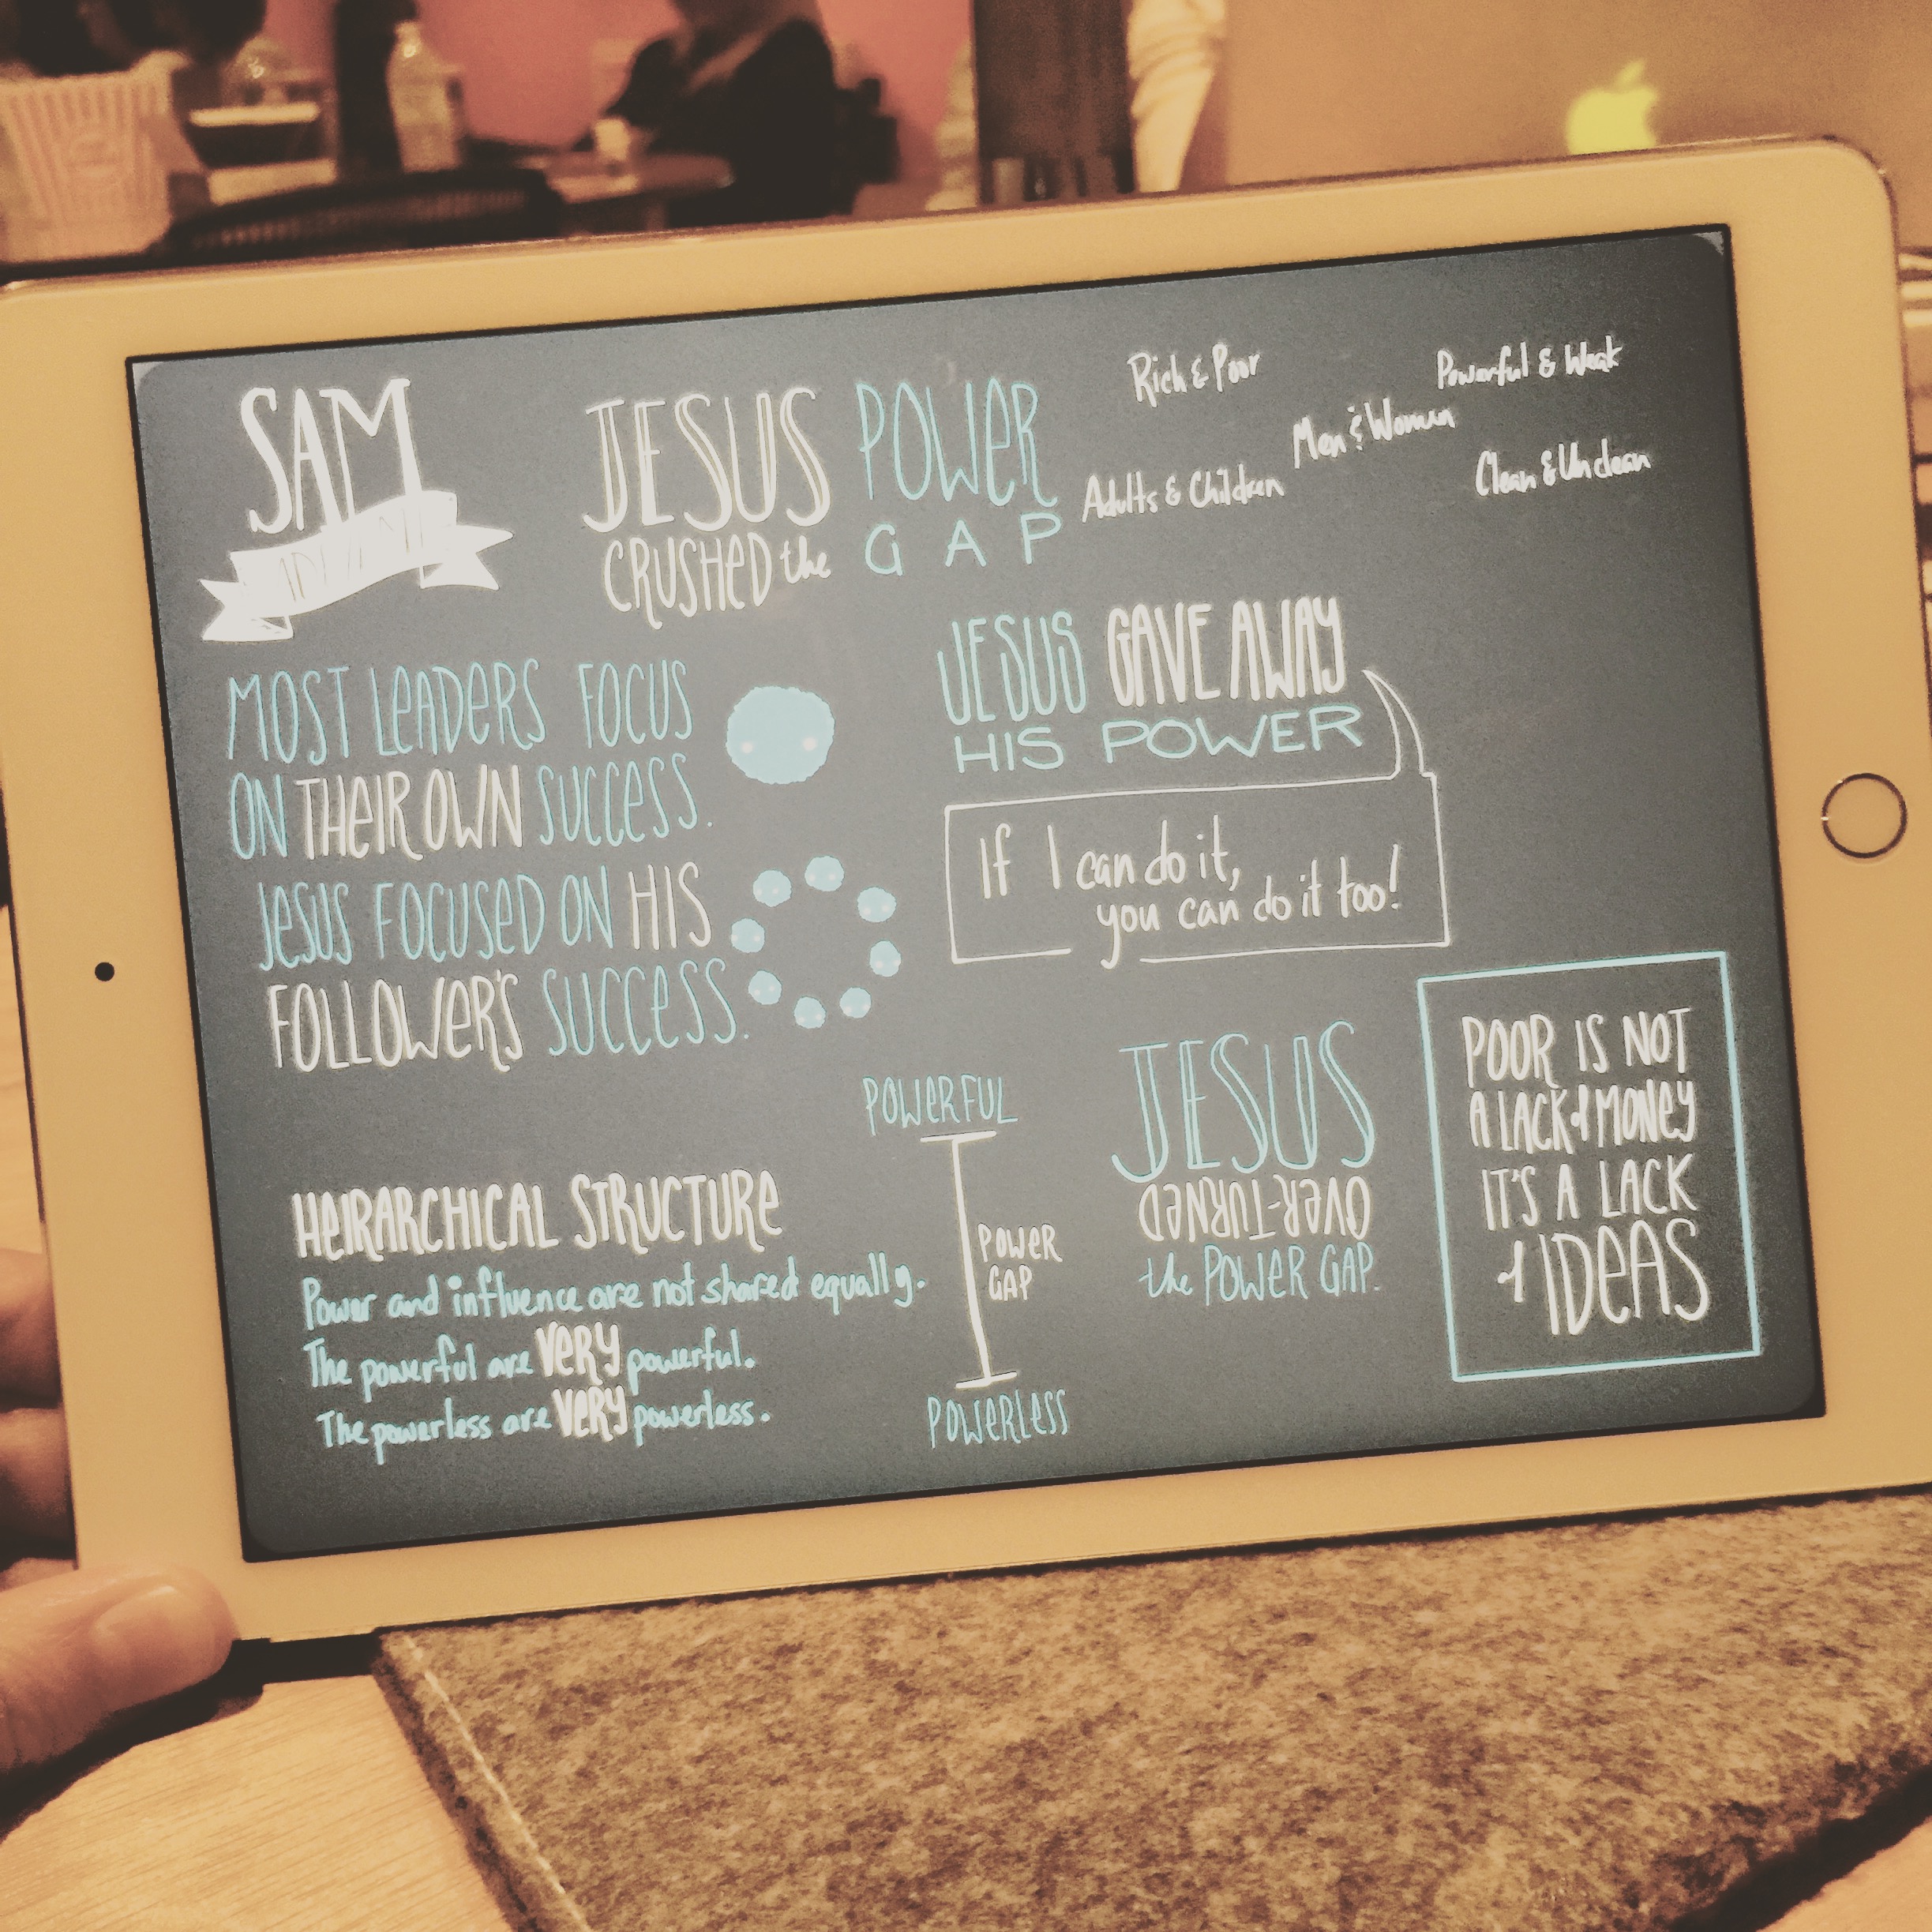 SAM
JESUS POWER
CRUSHED the GAP
Rich & Poor
Powerful & Weak
Men & Women
Adults & Children
Clean & Unclean
MOST LEADERS FOCUS
ON THEIR OWN SUCCESS.
JESUS FOCUSED ON HIS
FOLLOWER'S SUCCESS.
JESUS GAVE AWAY
HIS POWER
If I can do it,
you can do it too!
HEIRARCHICAL STRUCTURE
Power and influence are not shared equally.
The powerful are VERY powerful.
The powerless are VERY powerless.
POWERFUL
POWER
GAP
POWERLESS
JESUS
OVER-TURNED
the POWER GAP.
POOR IS NOT
A LACK of MONEY
IT'S A LACK
of IDEAS